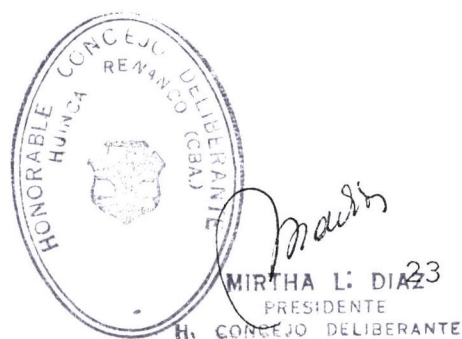 HONORABLE CONCEJO DELIBERANTE
HUINCA RENANCO (CBA)
MIRTHA L. DIAZ
23
PRESIDENTE
H. CONCEJO DELIBERANTE